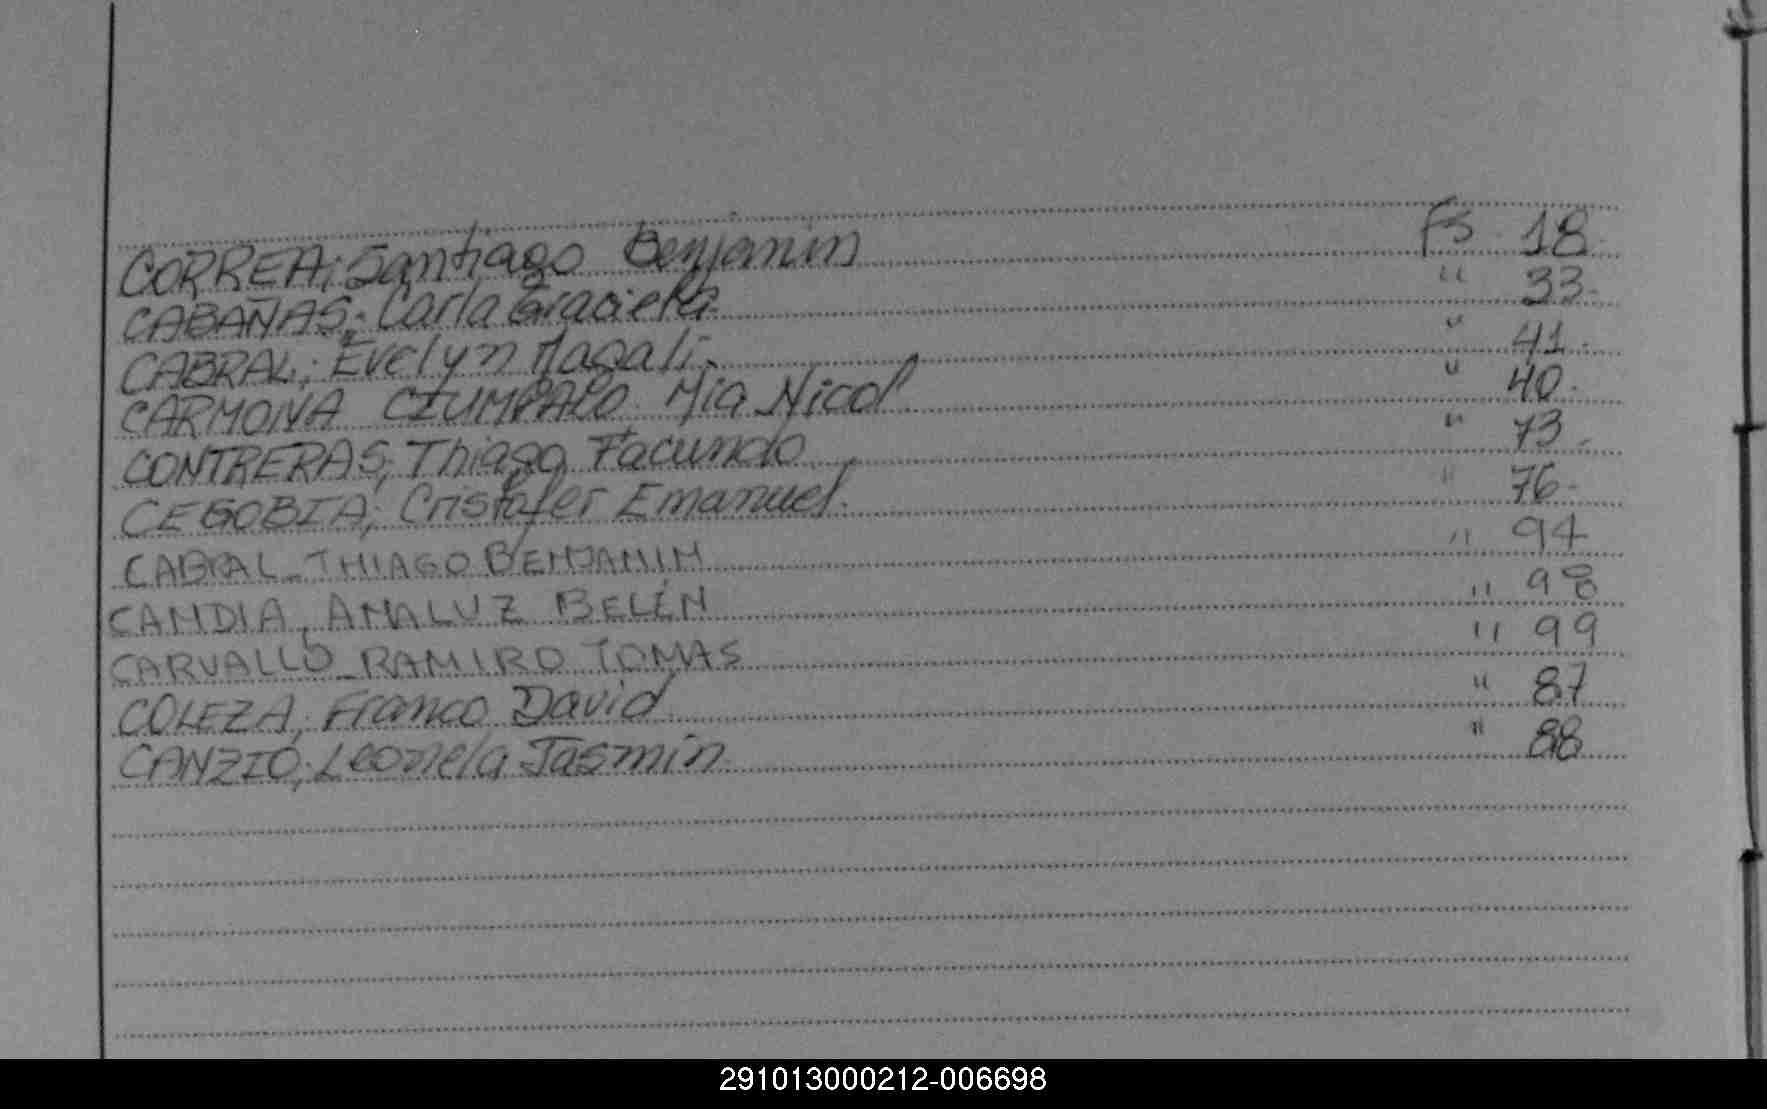 CORREA; Santiago Benjamin Fs 18.
CABAÑAS; Carla Graciela. " 33.
CABRAL; Evelyn Magali. " 41.
CARMONA Mia Nicol " 40.
CONTRERAS; Thiago Facundo " 73.
CEGOBIA; Cristofer Emanuel. " 76.
CABRAL - THIAGO BENJAMIN " 94
CANDIA, ANALUZ BELÉN " 98
CARVALLO - RAMIRO TOMAS " 99
COLEZA, Franco David " 87
CANZIO, Leonela Jasmin " 88
291013000212-006698